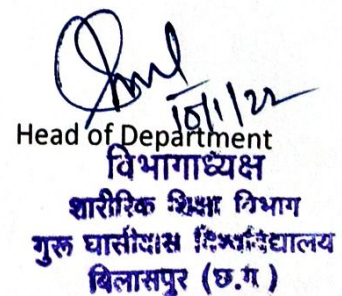 10/1/22
Head of Department
विभागाध्यक्ष
शारीरिक शिक्षा विभाग
गुरू घासीदास विश्वविद्यालय
बिलासपुर (छ.ग)